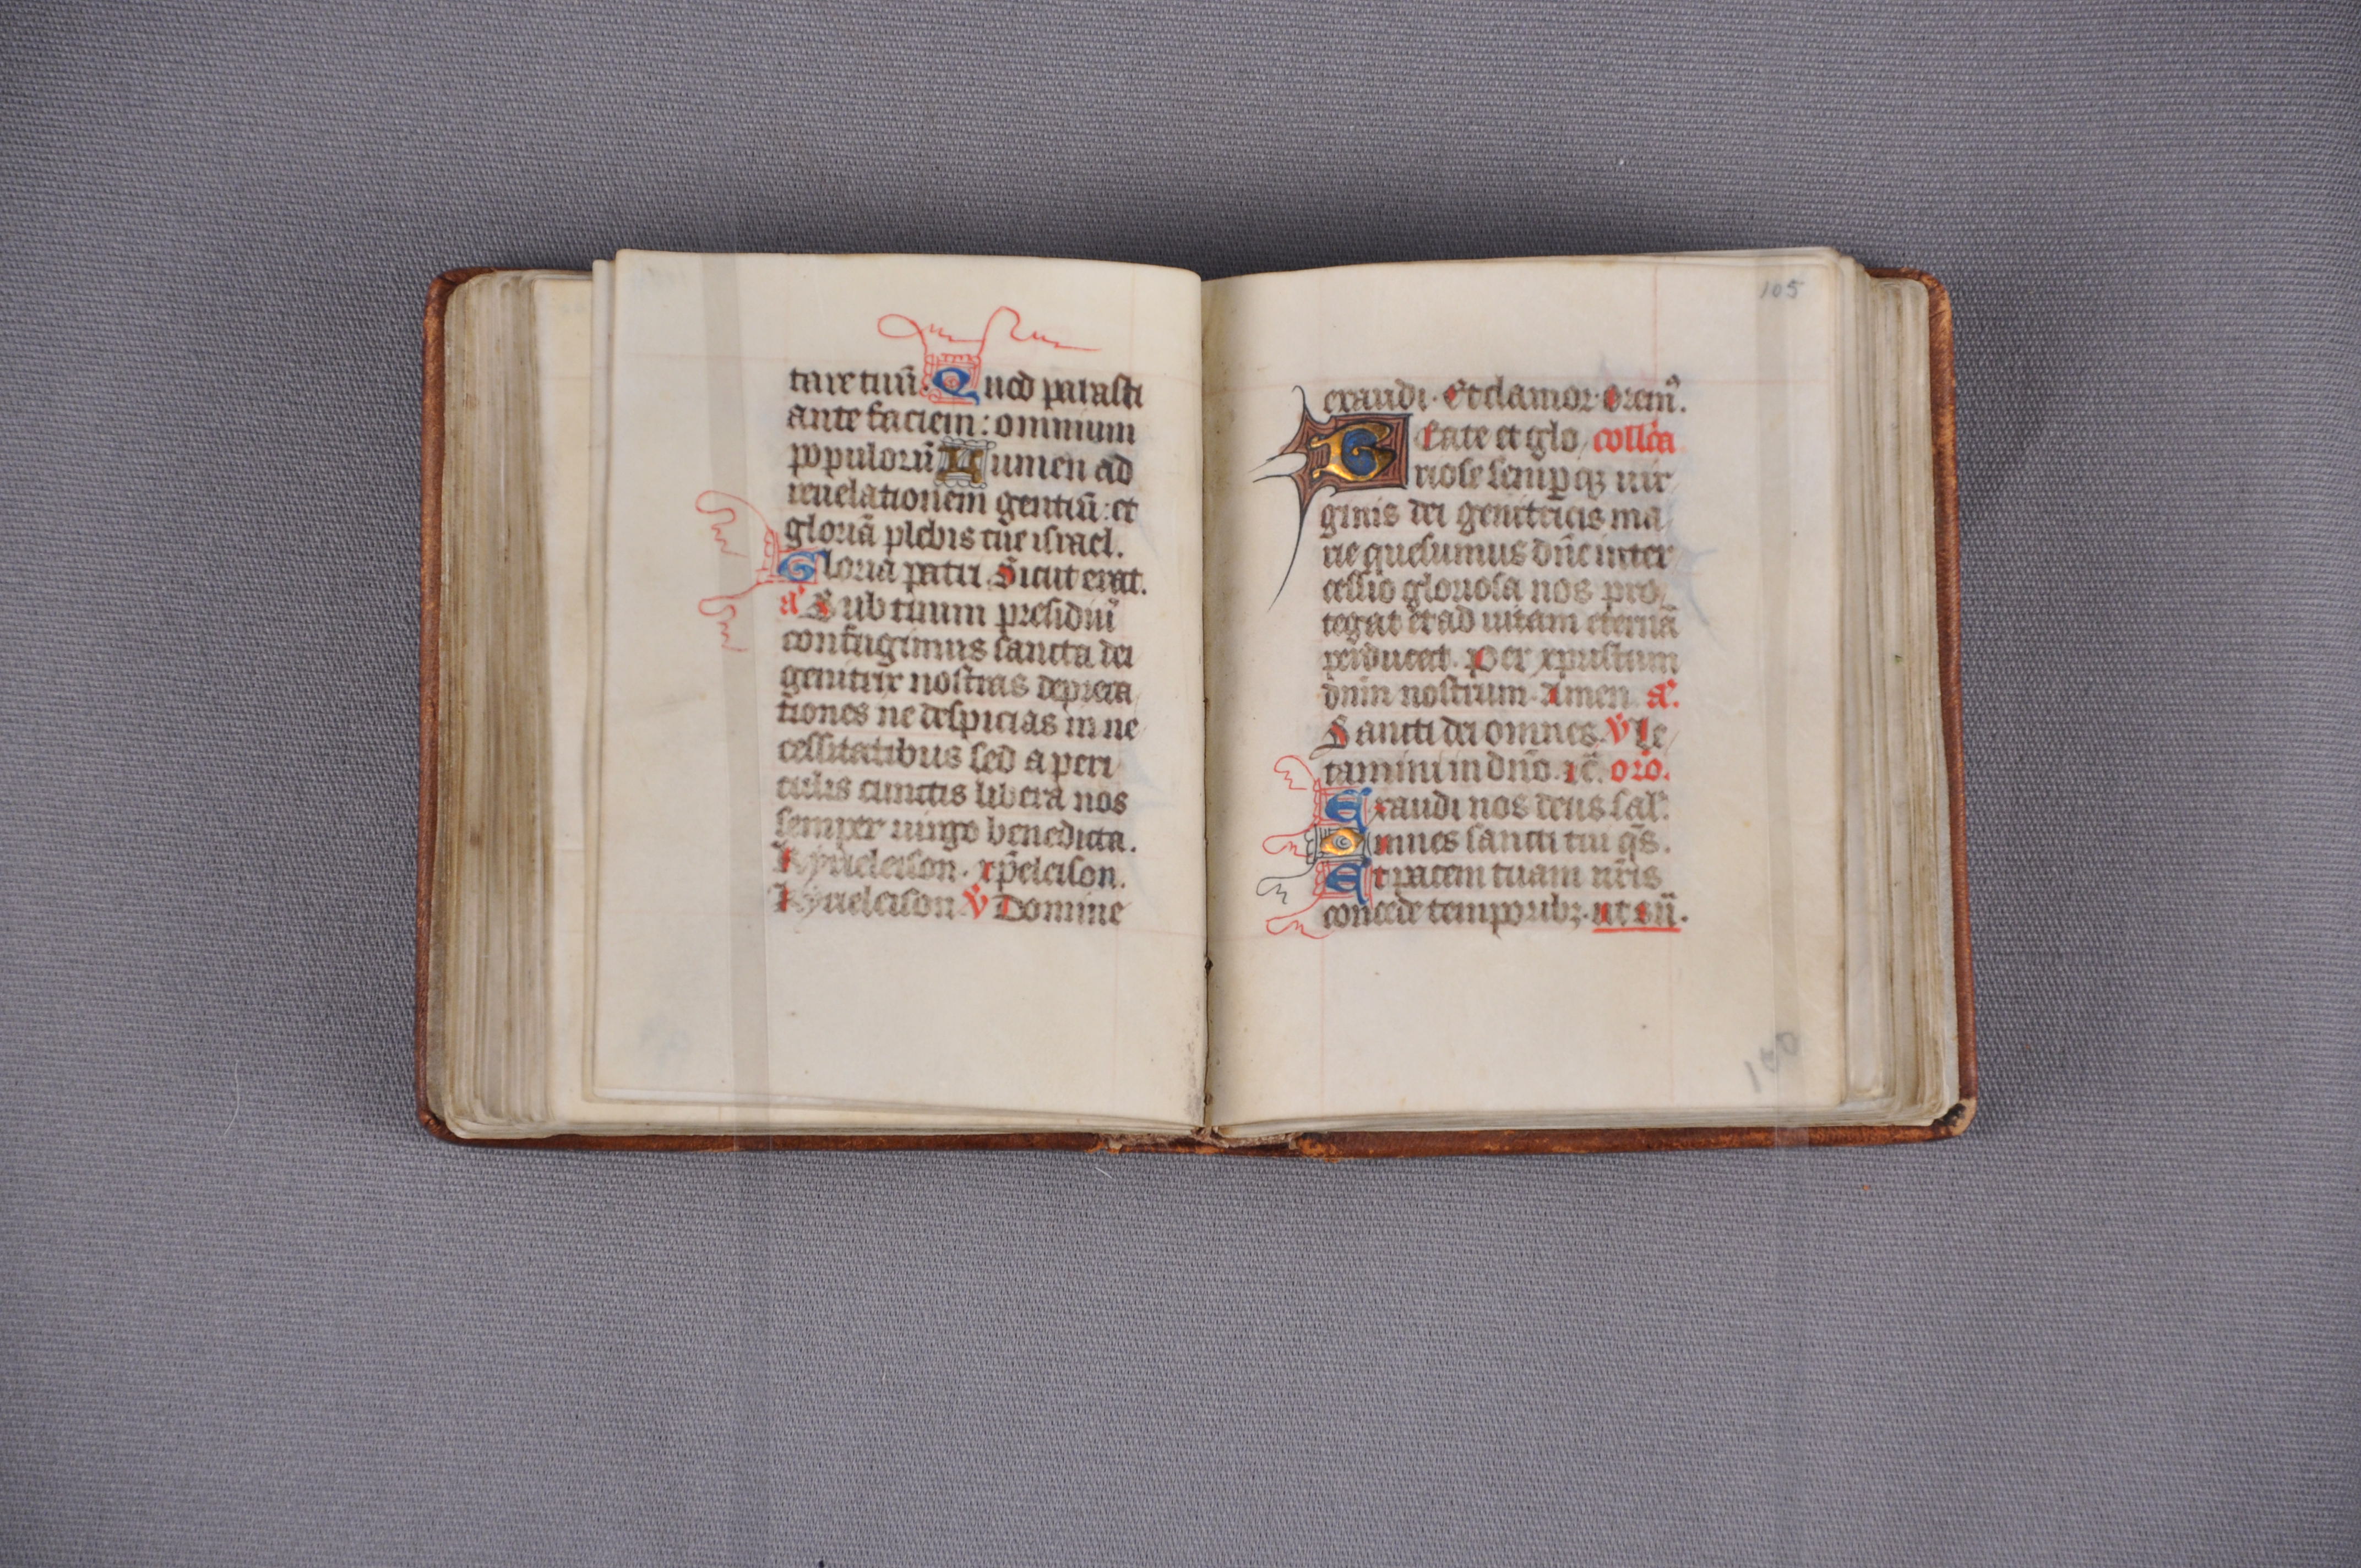 tare tuū. Quod parasti
ante faciem: omnium
populorū Lumen ad
reuelationem gentiū: et
gloriā plebis tue israel.
Gloria patri. Sicut erat.
a᷑ Sub tuum presidiū
confugimus sancta dei
genitrix nostras depreca
tiones ne despicias in ne
cessitatibus sed a peri
culis cunctis libera nos
semper uirgo benedicta.
Kyrieleison. xp̄eleison.
Kyrieleison V Domine
105
exaudi. Et clamor. Oremꝰ.
Beate et glo collc̄a
riose semp̲ qꝫ uir
ginis dei genitricis ma
rie quesumus dn̄e inter
cessio gloriosa nos pro
tegat et ad uitam eternā
perducat. Per xpristum
dnm nostrum. Amen. a᷑.
Sancti dei omnes. V Le
tamini in dn̄o. rc̄. oro.
Exaudi nos deus sal.
Omnes sancti tui qs̄.
Et pacem tuam nr̄is
concede temporibꝫ. ut sū.
100